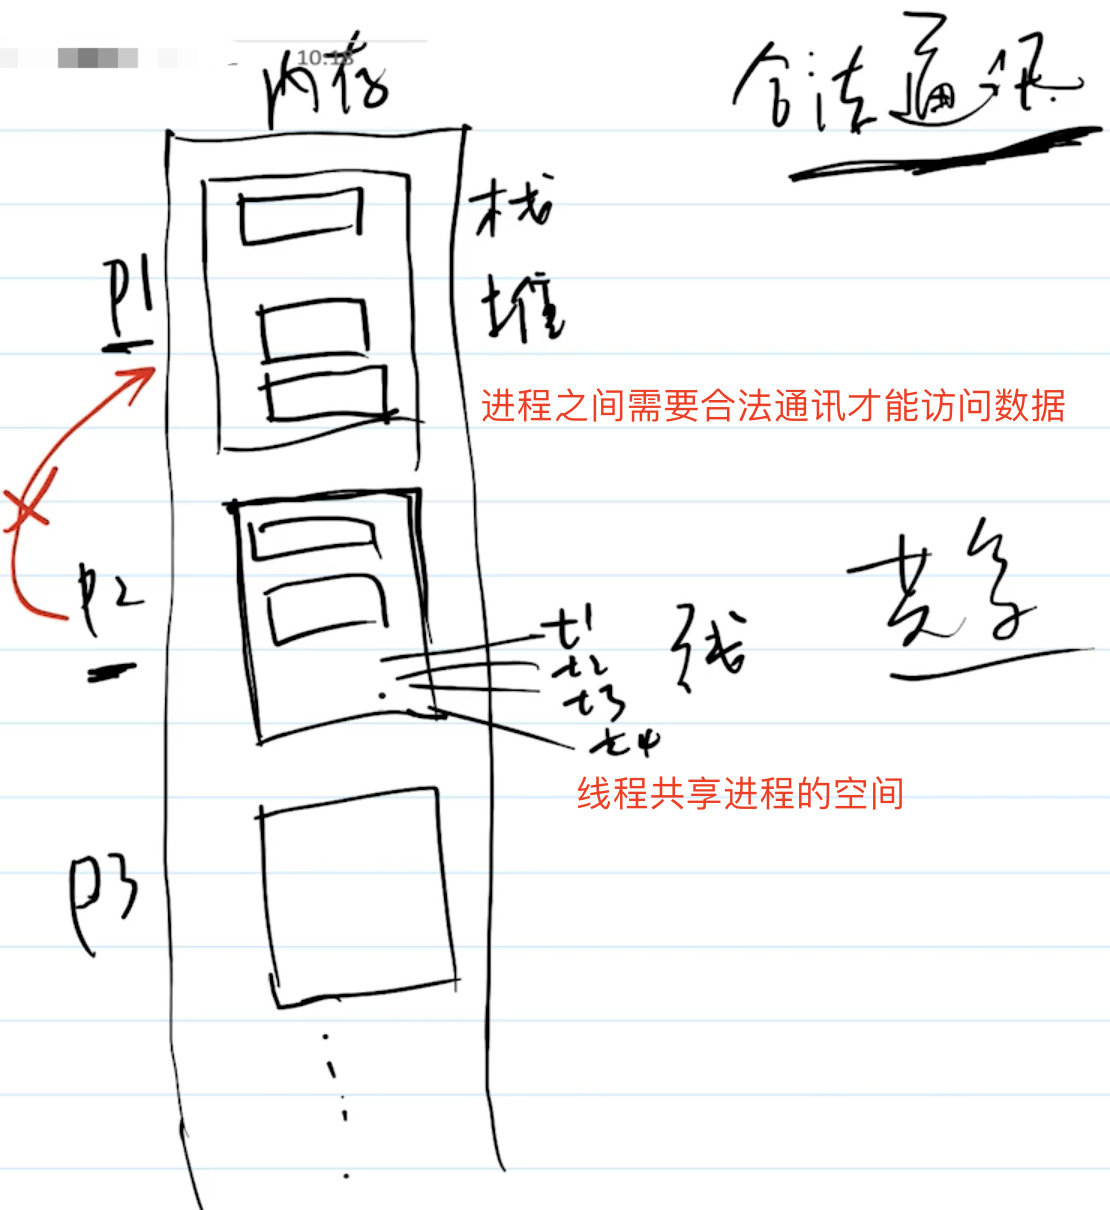 10:18
内存
合法通讯
栈
p1
堆
进程之间需要合法通讯才能访问数据
共享
p2
t1
线
t2
t3
t4
线程共享进程的空间
p3